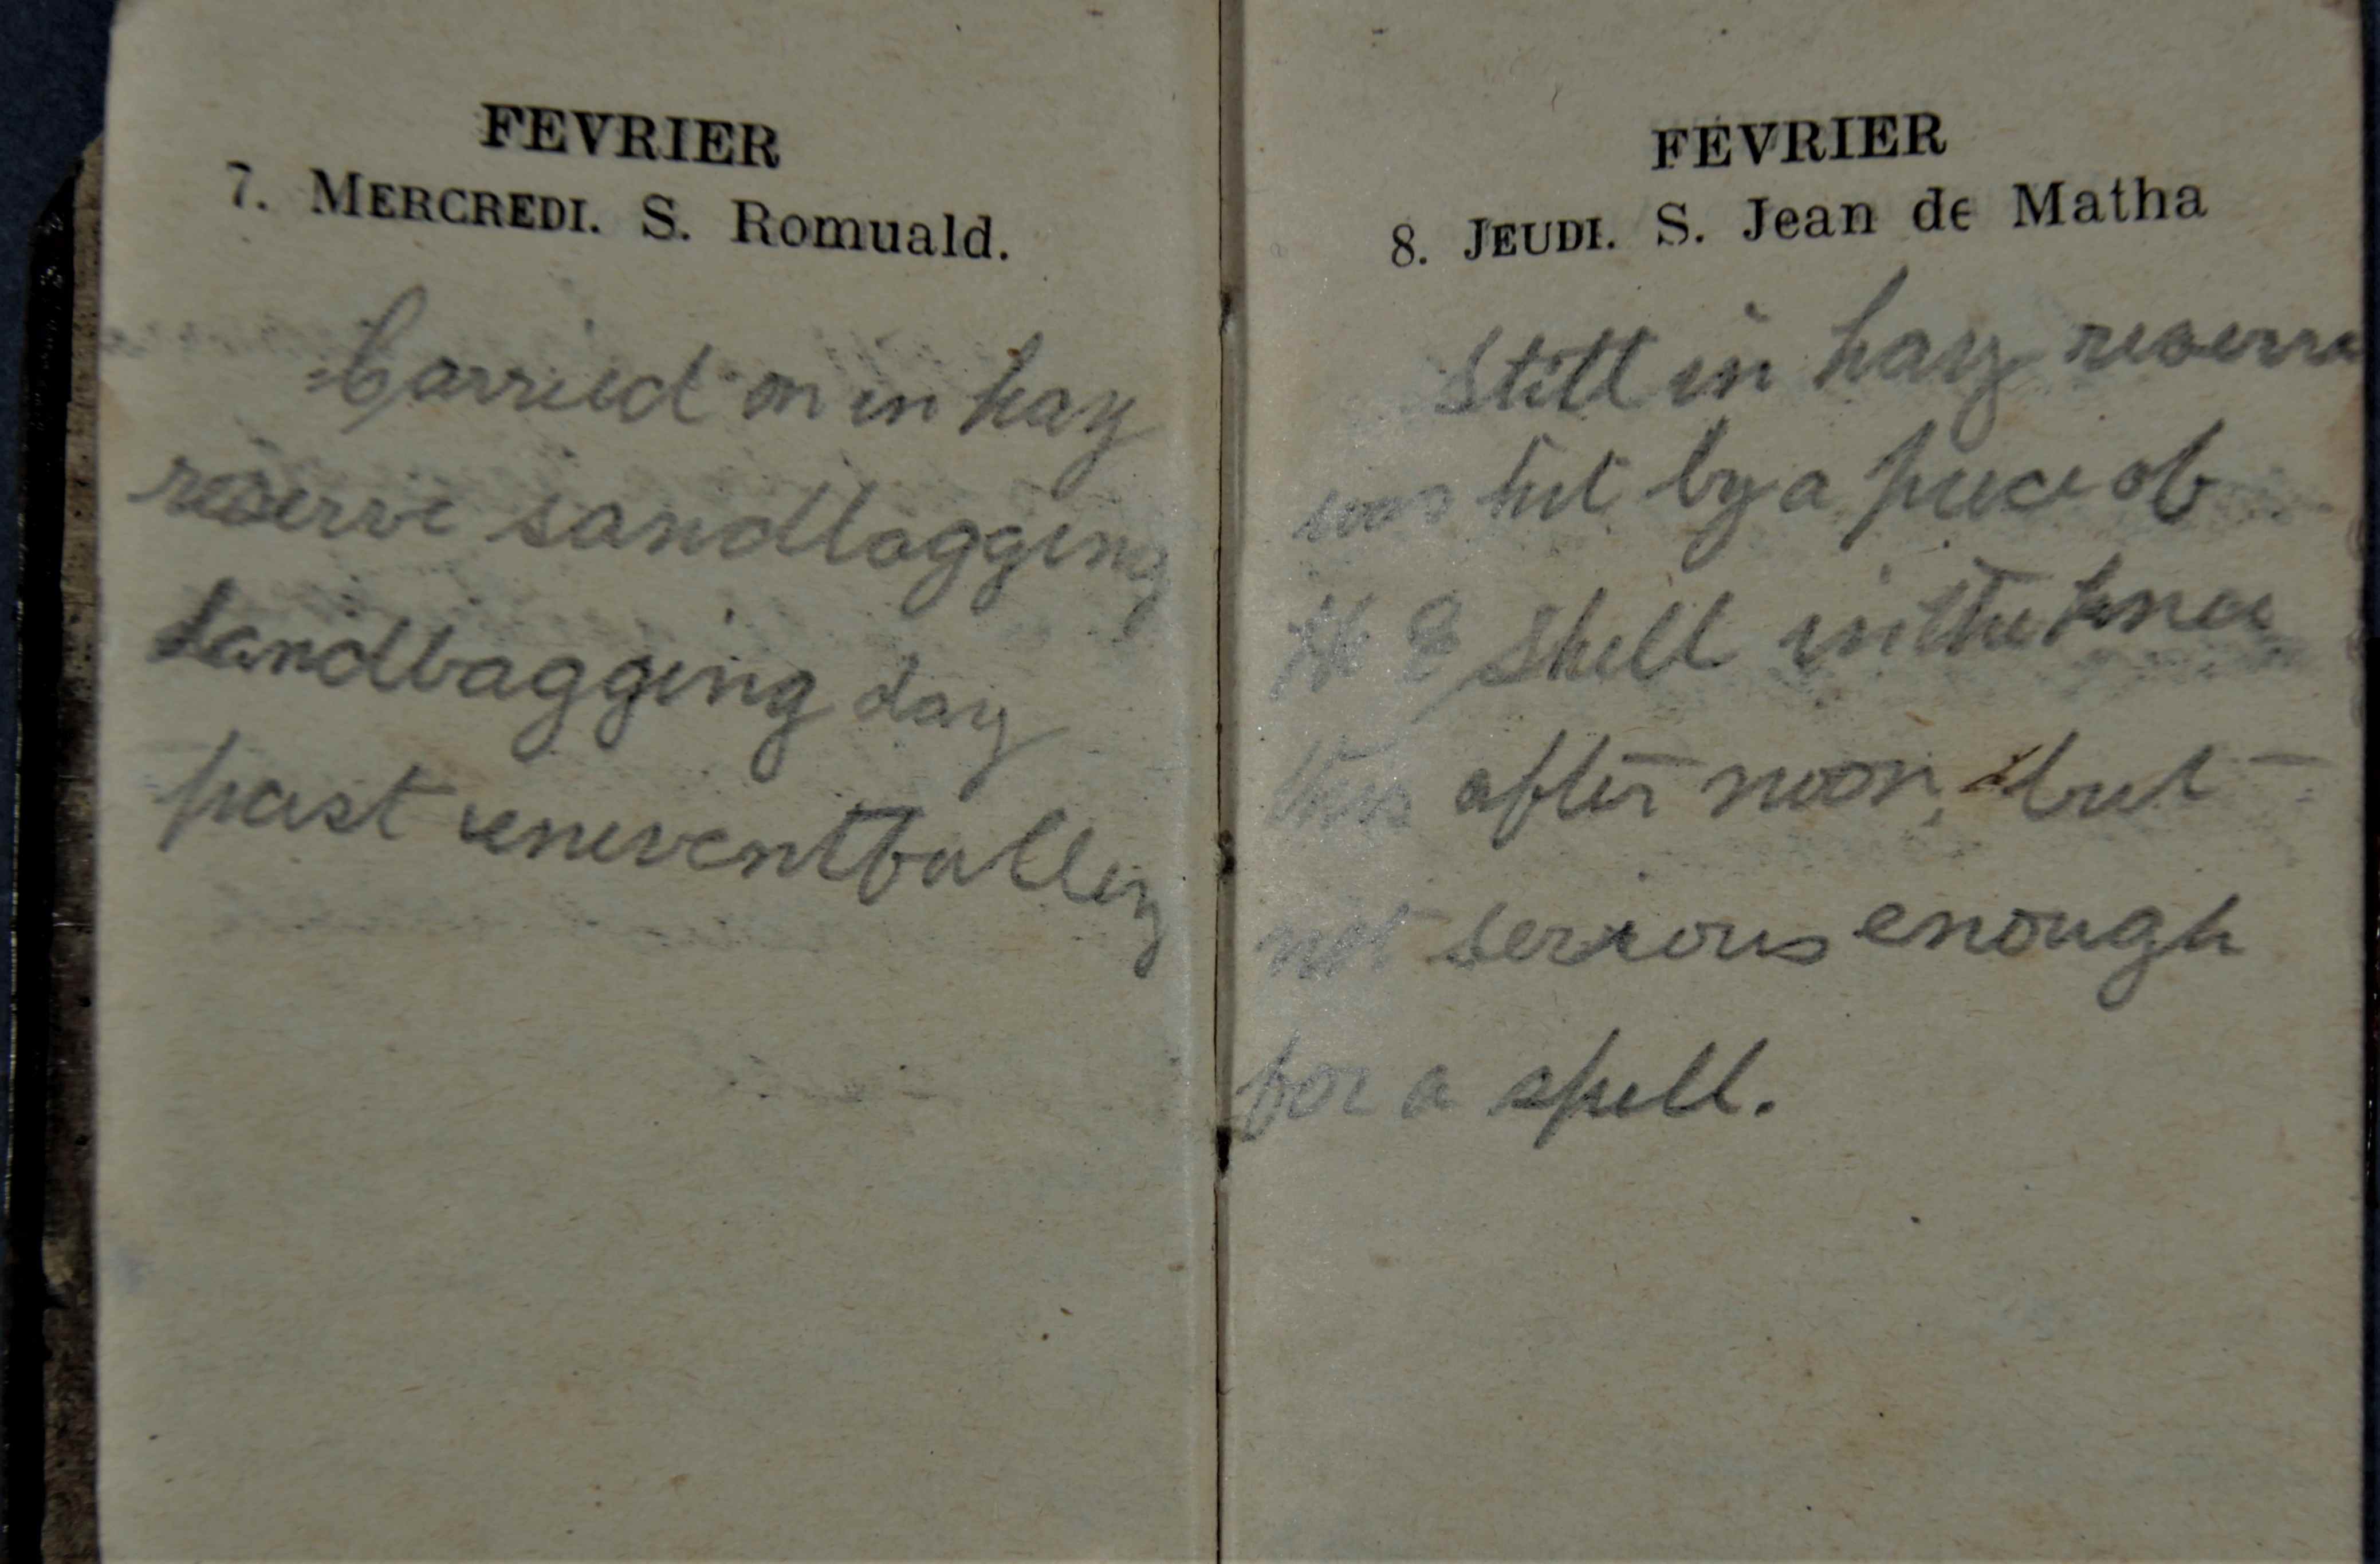 FEVRIER
7. MERCREDI. S. Romuald.
Carried on in hay
reserve sandlogging
sandbagging day
past uneventfully
FEVRIER
8. JEUDI. S. Jean de Matha
Still in hay reserve
was hit by a piece of
H E Shell in the knee
this after noon, but
not serious enough
for a spell.